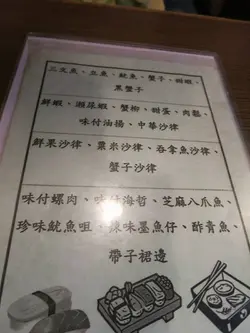 三文魚、立魚、魷魚、蟹子、甜蝦、
黑蟹子
鮮蝦、瀨尿蝦、蟹柳、甜蛋、肉鬆、
味付油揚、中華沙律
鮮果沙律、粟米沙律、吞拿魚沙律、
蟹子沙律
味付螺肉、味付海哲、芝麻八爪魚、
珍味魷魚咀、辣味墨魚仔、酢青魚、
帶子裙邊